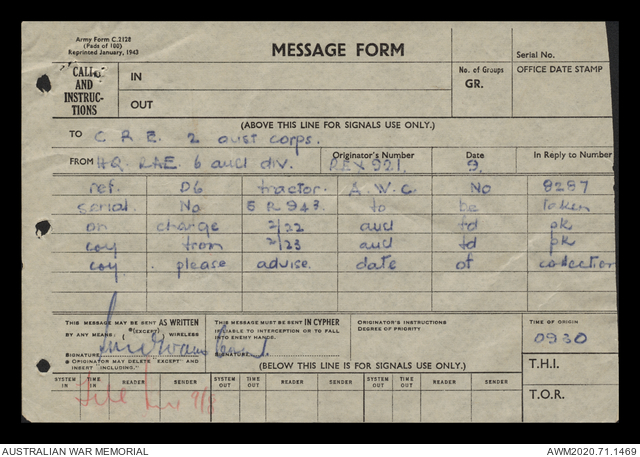 Army Form C.2128
(Pads of 100)
Reprinted January, 1943
MESSAGE FORM
Serial No.
CALL
AND
INSTRUC-
TIONS
IN
OUT
No. of Groups
GR.
OFFICE DATE STAMP
(ABOVE THIS LINE FOR SIGNALS USE ONLY.)
TO C R E. 2 aust corps.
FROM HQ. RAE 6 aust div. Originator's Number REX 921. Date 9. In Reply to Number
ref. D6 tractor. A.W.C. No 8297
serial No 5R943 to be taken
on charge 2/22 aust fd pk
coy from 2/23 aust fd pk
coy . please advise date of collection
THIS MESSAGE MAY BE SENT AS WRITTEN
BY ANY MEANS: (EXCEPT) WIRELESS
SIGNATURE
ORIGINATOR MAY DELETE EXCEPT AND
INSERT INCLUDING."
THIS MESSAGE MUST BE SENT IN CYPHER
IF LIABLE TO INTERCEPTION OR TO FALL
INTO ENEMY HANDS.
SIGNATURE
ORIGINATOR'S INSTRUCTIONS
DEGREE OF PRIORITY
TIME OF ORIGIN
0930
(BELOW THIS LINE IS FOR SIGNALS USE ONLY.)
T.H.I.
SYSTEM IN TIME IN READER SENDER SYSTEM OUT TIME OUT READER SENDER SYSTEM OUT TIME OUT READER SENDER
T.O.R.
9/8
AUSTRALIAN WAR MEMORIAL AWM2020.71.1469